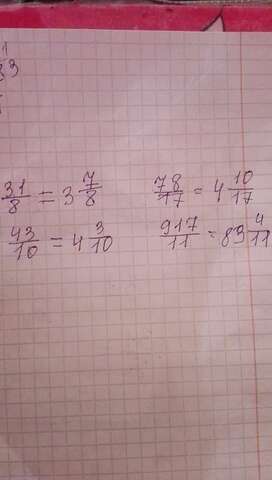 1
83
31/8 = 3 7/8    78/17 = 4 10/17
43/10 = 4 3/10    917/11 = 83 4/11